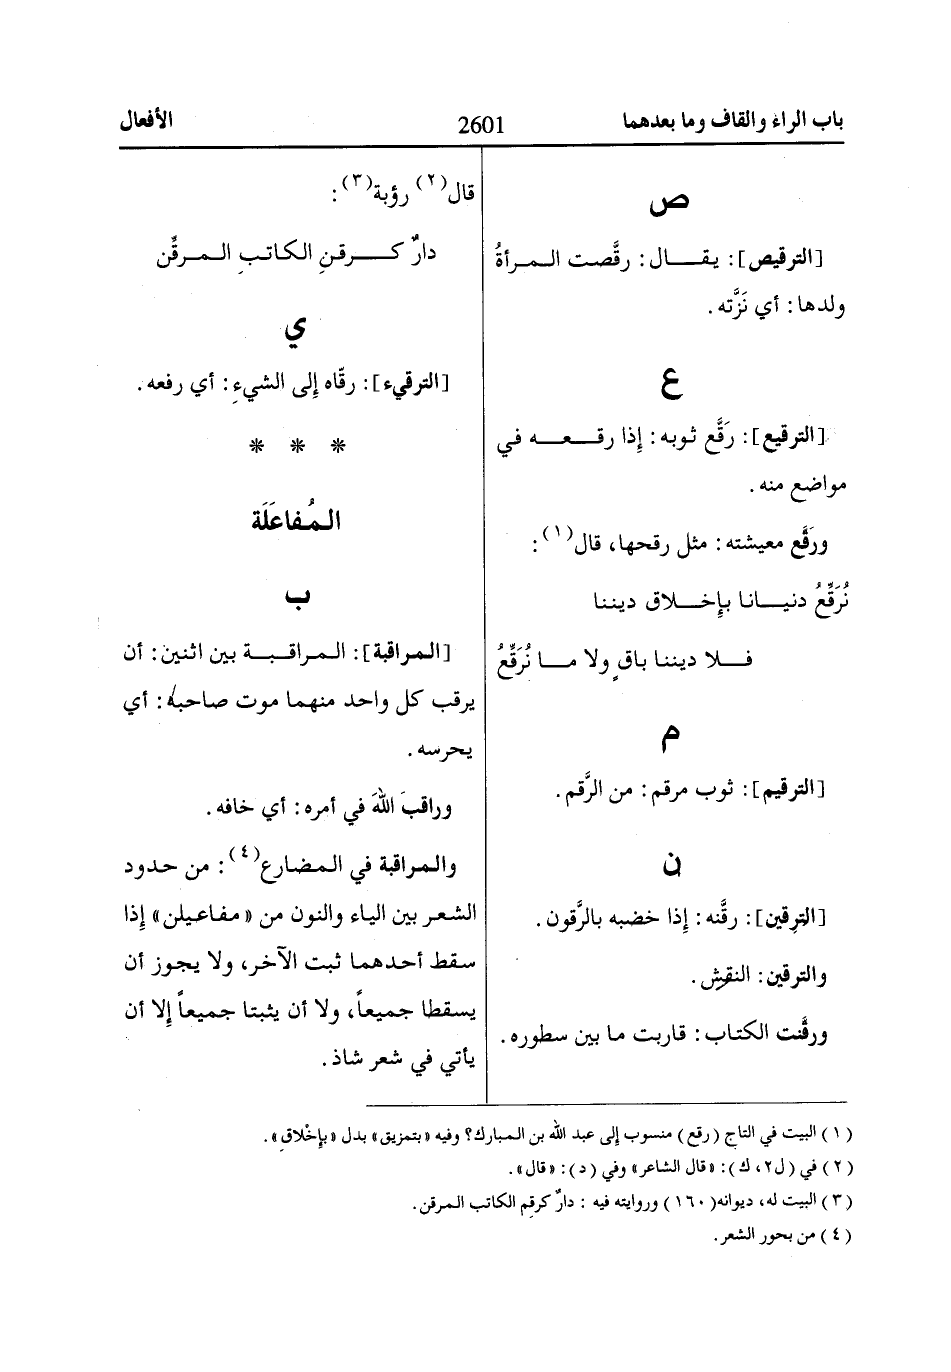 باب الراء والقاف وما بعدهما
2601
الأفعال
ص
[الترقيص]: يقال: رقَّصت المرأةُ
ولدها: أي نَزَّته.
ع
[الترقيع]: رَقَّع ثوبه: إذا رقعه في
مواضع منه.
ورَقَّع معيشته: مثل رقحها، قال(١):
نُرَقِّعُ دنيانا بإخلاق ديننا
فلا ديننا باقٍ ولا ما نُرَقِّعُ
م
[الترقيم]: ثوب مرقم: من الرَّقم.
ن
[الترقين]: رقَّنه: إذا خضبه بالرَّقون.
والترقين: النقش.
ورقَّنت الكتاب: قاربت ما بين سطوره.
قال(٢) رؤبة(٣):
دارٌ كرقنِ الكاتبِ المرقِّن
ي
[الترقيء]: رقّاه إلى الشيء: أي رفعه.
* * *
المُفاعَلَة
ب
[المراقبة]: المراقبة بين اثنين: أن
يرقب كل واحد منهما موت صاحبه: أي
يحرسه.
وراقبَ اللهَ في أمره: أي خافه.
والمراقبة في المضارع(٤): من حدود
الشعر بين الياء والنون من «مفاعيلن» إذا
سقط أحدهما ثبت الآخر، ولا يجوز أن
يسقطا جميعاً، ولا أن يثبتا جميعاً إلا أن
يأتي في شعر شاذ.
(١) البيت في التاج (رقع) منسوب إلى عبد الله بن المبارك؟ وفيه «بتمزيق» بدل «بإخْلاقِ».
(٢) في (ل٢، ك): «قال الشاعر» وفي (د): «قال».
(٣) البيت له، ديوانه(١٦٠) وروايته فيه : دارٌ كرقمِ الكاتب المرقن.
(٤) من بحور الشعر.